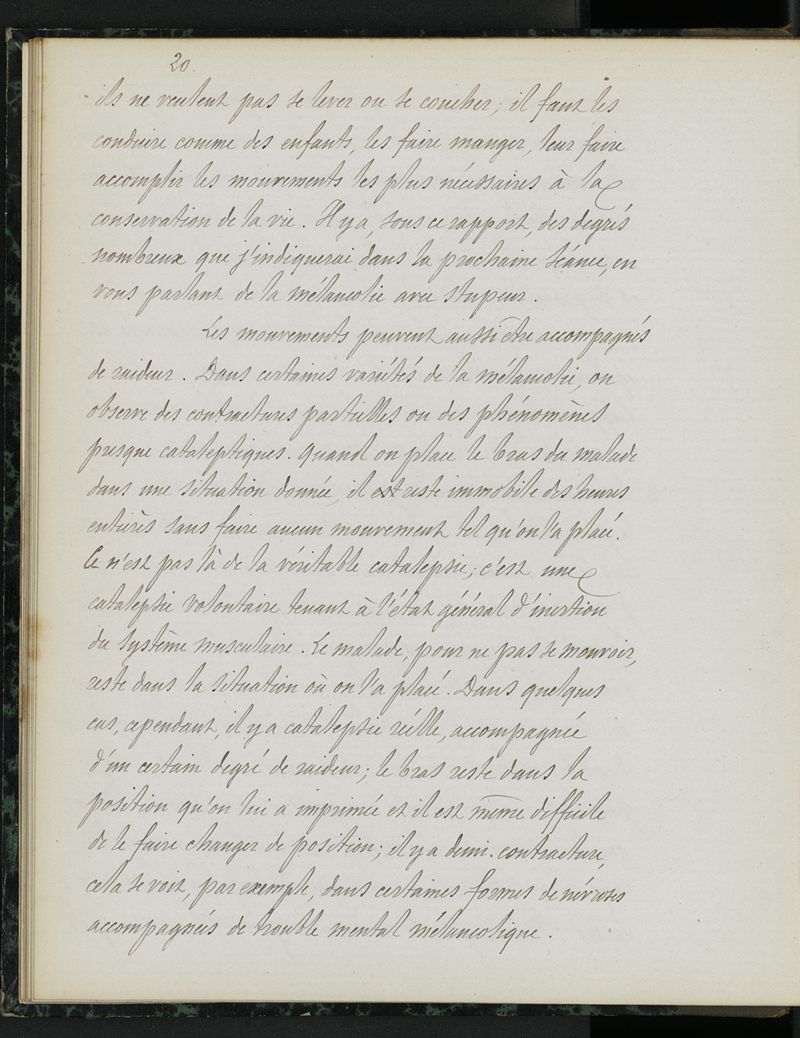 20.
ils ne veulent pas se lever ou se coucher; il faut les
conduire comme des enfants, les faire manger, leur faire
accomplir les mouvements les plus nécessaires à la
conservation de la vie. Il y a, sous ce rapport, des degrés
nombreux que j'indiquerai dans la prochaine séance, en
vous parlant de la mélancolie avec stupeur.
Les mouvements peuvent aussi être accompagnés
de raideur. Dans certaines variétés de la mélancolie, on
observe des contractures partielles ou des phénomènes
presque cataleptiques. Quand on place le bras du malade
dans une situation donnée, il est reste immobile des heures
entières sans faire aucun mouvement tel qu'on l'a placé.
Ce n'est pas là de la véritable catalepsie; c'est une
catalepsie volontaire tenant à l'état général d'inertion
du système musculaire. Le malade, pour ne pas se mouvoir,
reste dans la situation où on l'a placé. Dans quelques
cas, cependant, il y a catalepsie réelle, accompagnée
d'un certain degré de raideur; le bras reste dans la
position qu'on lui a imprimée et il est même difficile
de le faire changer de position; il y a demi-contracture,
cela se voit, par exemple, dans certaines formes de névroses
accompagnées de trouble mental mélancolique.